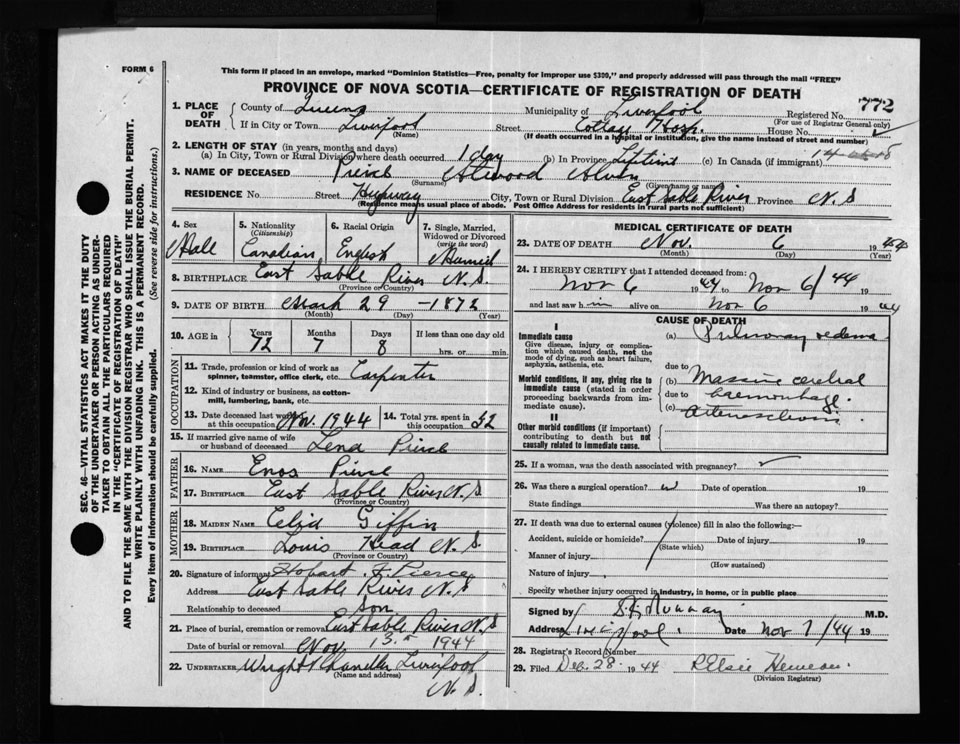 FORM 6
This form if placed in an envelope, marked "Dominion Statistics—Free, penalty for improper use $300," and properly addressed will pass through the mail "FREE"
PROVINCE OF NOVA SCOTIA—CERTIFICATE OF REGISTRATION OF DEATH
772
1. PLACE OF DEATH { County of Queens Municipality of Liverpool Registered No.
(For use of Registrar General only)
If in City or Town Liverpool Street Cottage Hosp. House No.
(Name) (If death occurred in a hospital or institution, give the name instead of street and number)
2. LENGTH OF STAY (in years, months and days)
(a) In City, Town or Rural Division where death occurred 1 day (b) In Province Lifetime (c) In Canada (if immigrant)
3. NAME OF DECEASED Peirce Atwood Alvin
(Surname) (Given name or name)
RESIDENCE No. Street Highway City, Town or Rural Division East Sable River Province N.S
(Residence means usual place of abode. Post Office Address for residents in rural parts not sufficient)
4. Sex Male
5. Nationality (Citizenship) Canadian
6. Racial Origin English
7. Single, Married, Widowed or Divorced (write the word) Married
8. BIRTHPLACE East Sable River N.S
(Province or Country)
9. DATE OF BIRTH March 29 - 1872
(Month) (Day) (Year)
10. AGE in Years 72 Months 7 Days 8 If less than one day old
hrs. or min.
OCCUPATION
11. Trade, profession or kind of work as spinner, teamster, office clerk, etc. Carpenter
12. Kind of industry or business, as cotton-mill, lumbering, bank, etc.
13. Date deceased last worked at this occupation Nov. 1944
14. Total yrs. spent in this occupation 52
15. If married give name of wife or husband of deceased Lena Peirce
FATHER
16. NAME Enos Peirce
17. BIRTHPLACE East Sable River N.S
(Province or Country)
MOTHER
18. MAIDEN NAME Giffin
19. BIRTHPLACE Louis Head N.S
(Province or Country)
20. Signature of informant Hobart F. Pierce
Address East Sable River N.S
Relationship to deceased son
21. Place of burial, cremation or removal East Sable River N.S
Date of burial or removal Nov. 1944
22. UNDERTAKER Wright Chandler Liverpool
(Name and address)
N.S.
MEDICAL CERTIFICATE OF DEATH
23. DATE OF DEATH Nov. 6 1944
(Month) (Day) (Year)
24. I HEREBY CERTIFY that I attended deceased from:
Nov 6 1944 to Nov 6/44
and last saw him alive on Nov 6 1944
CAUSE OF DEATH
I
Immediate cause
Give disease, injury or complication which caused death, not the mode of dying, such as heart failure, asphyxia, asthenia, etc.
(a) Pulmonary oedema
due to
Morbid conditions, if any, giving rise to immediate cause (stated in order proceeding backwards from immediate cause).
(b) Massive cerebral
due to haemorrhage.
(c) Arteriosclerosis
II
Other morbid conditions (if important) contributing to death but not causally related to immediate cause.
25. If a woman, was the death associated with pregnancy?
26. Was there a surgical operation? Date of operation 19
State findings Was there an autopsy?
27. If death was due to external causes (violence) fill in also the following:—
Accident, suicide or homicide? Date of injury 19
(State which)
Manner of injury
(How sustained)
Nature of injury
Specify whether injury occurred in industry, in home, or in public place
Signed by M.D.
Address Liverpool. Date Nov 7/44 19
28. Registrar's Record Number
29. Filed Dec. 28. 1944
(Division Registrar)
SEC. 46—VITAL STATISTICS ACT MAKES IT THE DUTY
OF THE UNDERTAKER OR PERSON ACTING AS UNDER-
TAKER TO OBTAIN ALL THE PARTICULARS REQUIRED
IN THE "CERTIFICATE OF REGISTRATION OF DEATH"
AND TO FILE THE SAME WITH THE DIVISION REGISTRAR WHO SHALL ISSUE THE BURIAL PERMIT.
WRITE PLAINLY WITH UNFADING INK. THIS IS A PERMANENT RECORD.
Every item of information should be carefully supplied. (See reverse side for instructions.)